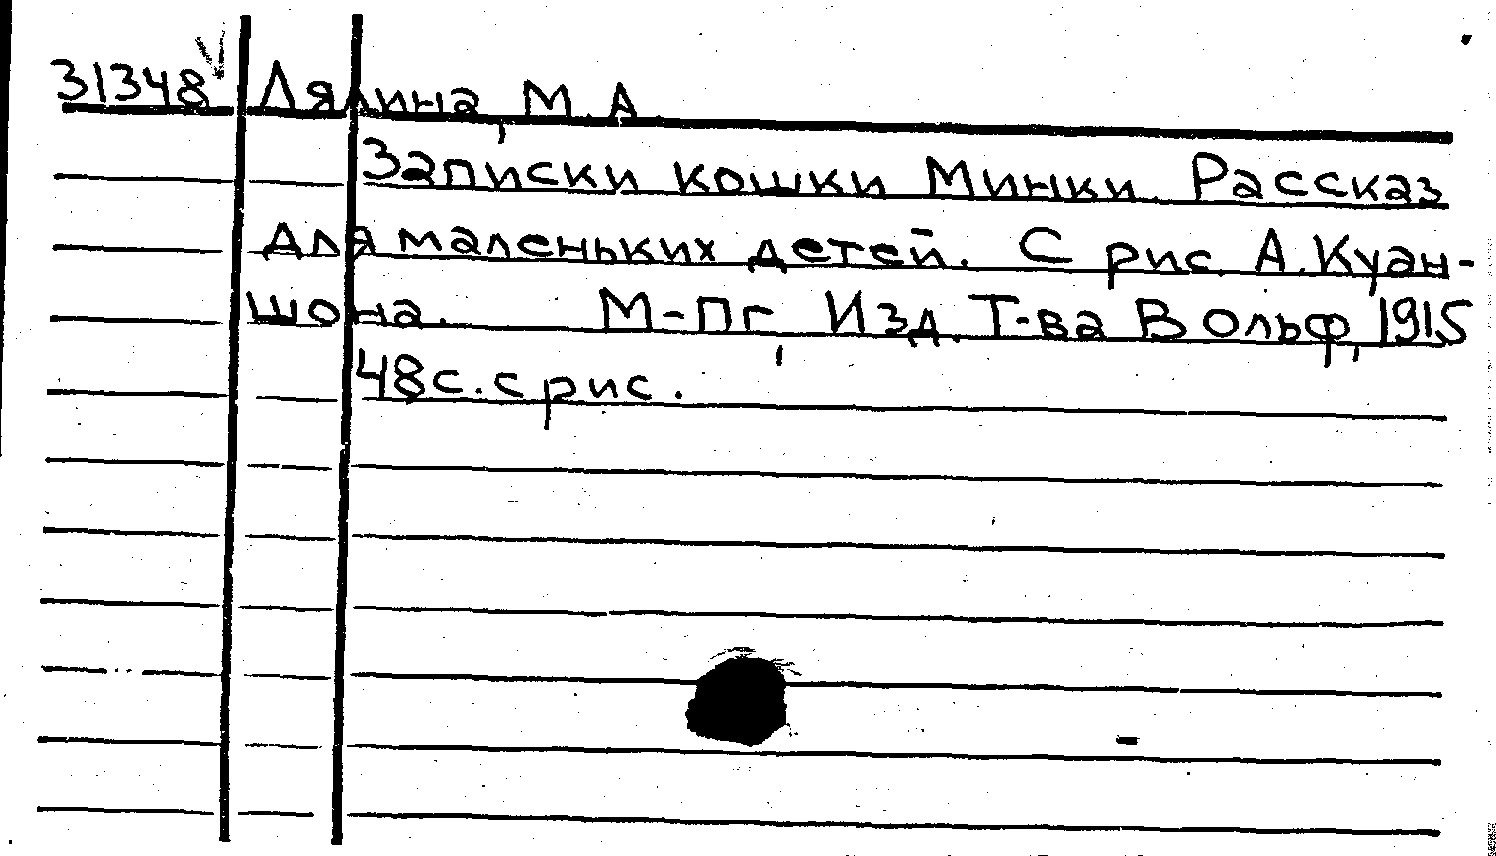 31348 Лялина, М. А.
Записки кошки Минки. Рассказ
для маленьких детей. С рис. А. Куан-
шона. М-Пг, Изд. Т-ва Вольф, 1915
48 с. с рис.